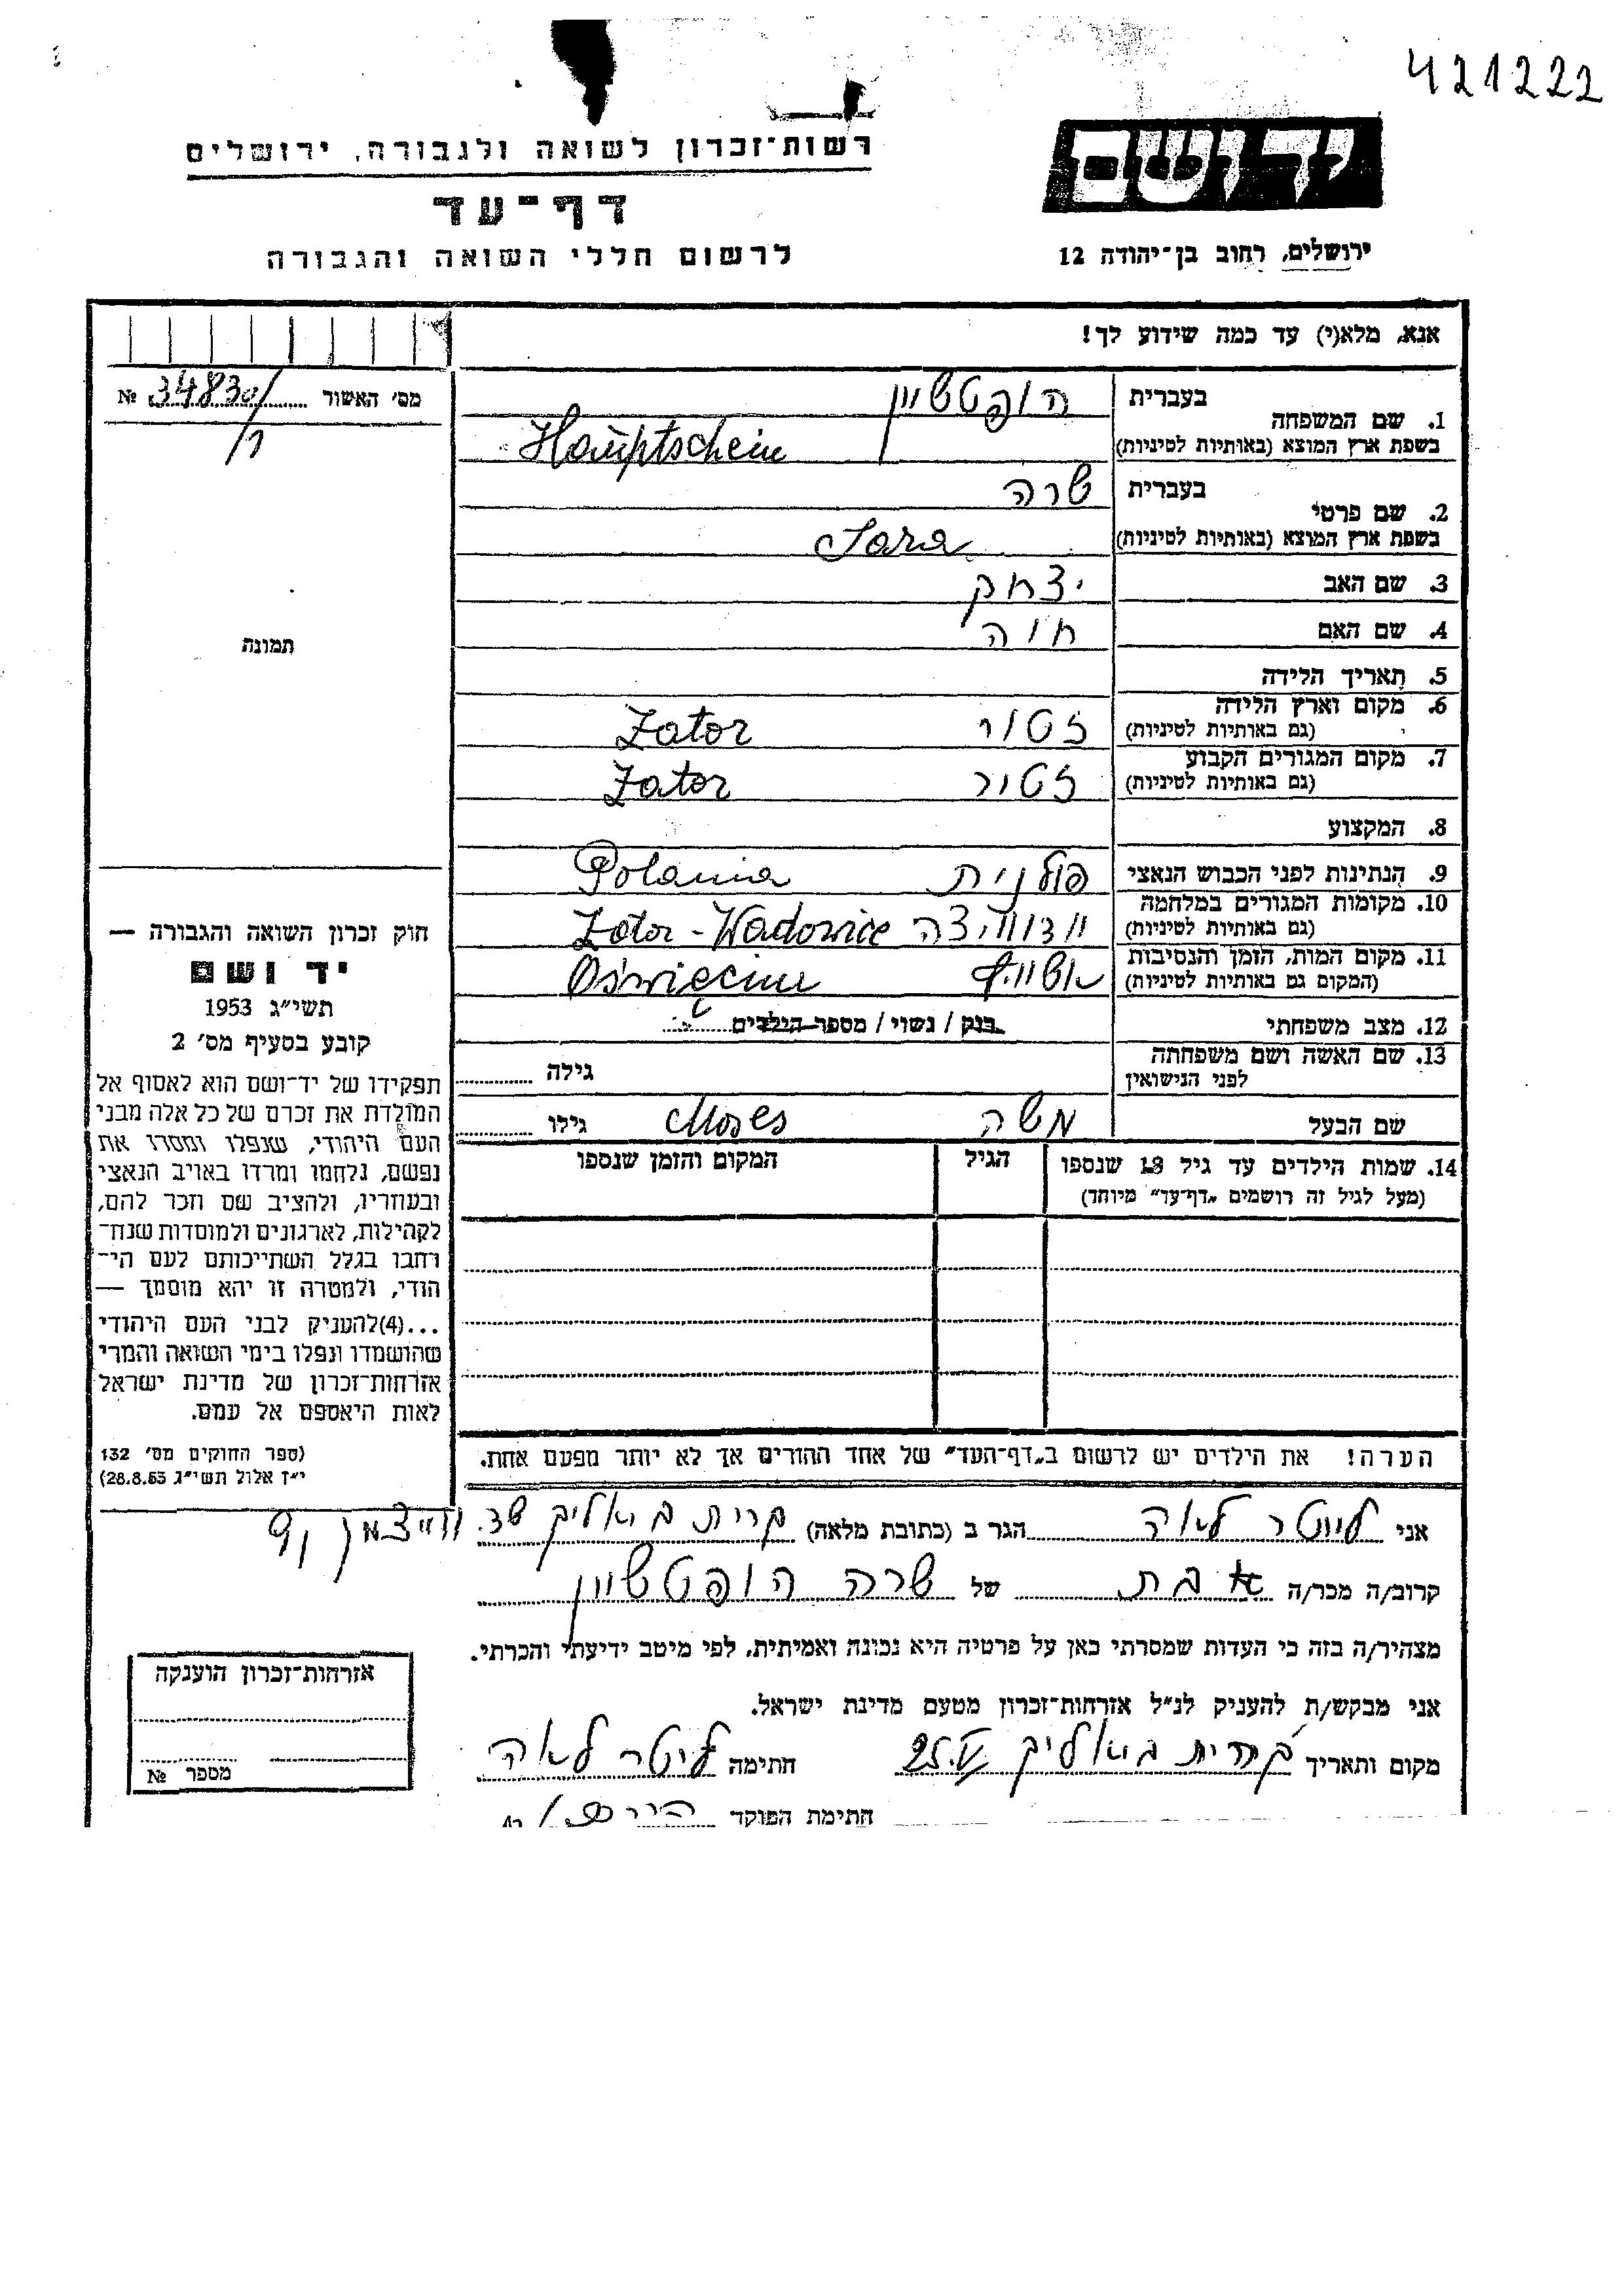 421222
יד ושם
רשות-זכרון לשואה ולגבורה, ירושלים
דף-עד
לרשום חללי השואה והגבורה
ירושלים, רחוב בן-יהודה 12
אנא, מלא(י) עד כמה שידוע לך!
מס׳ האשור 34830/ №
1. שם המשפחה
בעברית הופטשיין
בשפת ארץ המוצא (באותיות לטיניות) Hauptschein
2. שם פרטי
בעברית שרה
בשפת ארץ המוצא (באותיות לטיניות) Sara
3. שם האב יצחק
4. שם האם חוה
5. תאריך הלידה
6. מקום וארץ הלידה
(גם באותיות לטיניות) זטור Zator
7. מקום המגורים הקבוע
(גם באותיות לטיניות) זטור Zator
8. המקצוע
9. הנתינות לפני הכבוש הנאצי פולנית Polania
10. מקומות המגורים במלחמה
(גם באותיות לטיניות) וודוויצה Zator - Wadowice
11. מקום המות, הזמן והנסיבות
(המקום גם באותיות לטיניות) Oświęcim
12. מצב משפחתי רוק / נשוי / מספר הילדים
13. שם האשה ושם משפחתה
לפני הנישואין גילה
שם הבעל משה Moses גילו
14. שמות הילדים עד גיל 18 שנספו הגיל המקום והזמן שנספו
(מעל לגיל זה רושמים „דף-עד״ מיוחד)
הערה! את הילדים יש לרשום ב„דף-העד״ של אחד ההורים אך לא יותר מפעם אחת.
תמונה
חוק זכרון השואה והגבורה —
יד ושם
תשי״ג 1953
קובע בסעיף מס׳ 2
תפקידו של יד-ושם הוא לאסוף אל
המולדת את זכרם של כל אלה מבני
העם היהודי, שנפלו ומסרו את
נפשם, נלחמו ומרדו באויב הנאצי
ובעוזריו, ולהציב שם וזכר להם,
לקהילות, לארגונים ולמוסדות שנח-
רבו בגלל השתייכותם לעם הי-
הודי, ולמטרה זו יהא מוסמך —
...(4)להעניק לבני העם היהודי
שהושמדו ונפלו בימי השואה והמרי
אזרחות-זכרון של מדינת ישראל
לאות היאספם אל עמם.
(ספר החוקים מס׳ 132
י״ז אלול תשי״ג 28.8.53)
אני ליטר לאה הגר ב (כתובת מלאה) קרית ביאליק שד. ווייצמן
קרוב/ה מכר/ה בת של שרה הופטשיין
מצהיר/ה בזה כי העדות שמסרתי כאן על פרטיה היא נכונה ואמיתית, לפי מיטב ידיעתי והכרתי.
אני מבקש/ת להעניק לנ״ל אזרחות-זכרון מטעם מדינת ישראל.
מקום ותאריך קרית ביאליק 25. חתימה ליטר לאה
חתימת הפוקד
אזרחות-זכרון הוענקה
מספר №